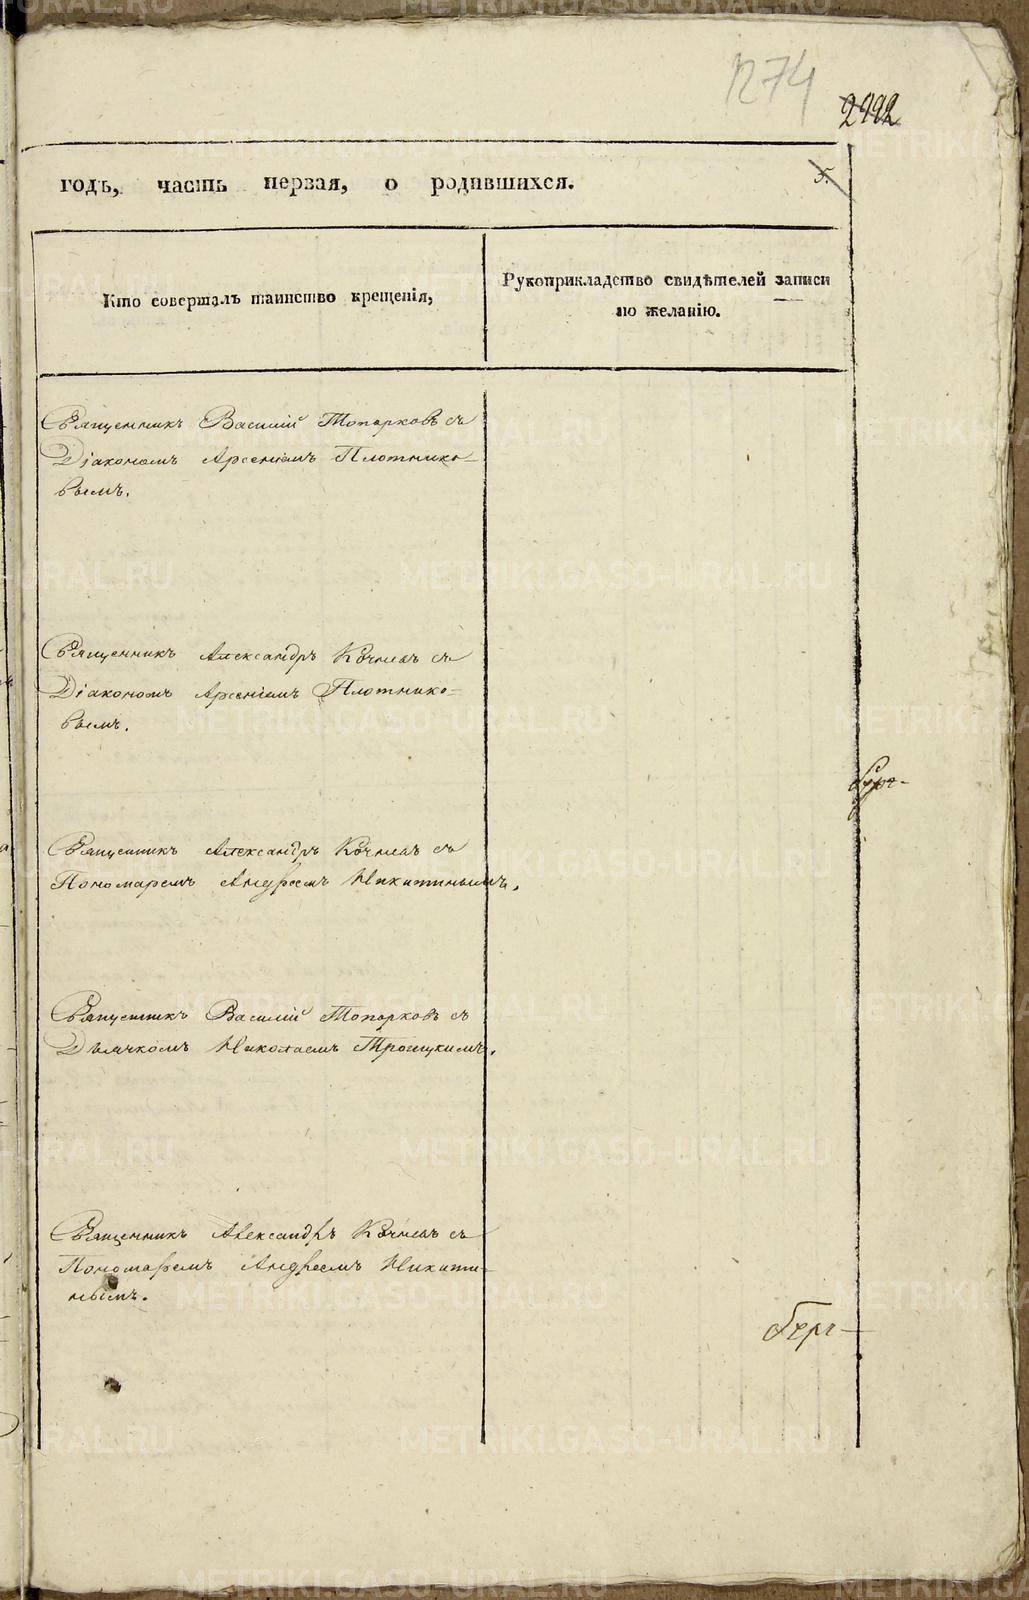 1274
годъ, часть первая, о родившихся.
5.
Кто совершалъ таинство крещенія,
Рукоприкладство свидѣтелей записи
по желанію.
Священникъ Василій Топорковъ съ
Діакономъ Арсеніемъ Плотнико-
вымъ.
Священникъ Александръ Кочневъ съ
Діакономъ Арсеніемъ Плотнико-
вымъ.
Священникъ Александръ Кочневъ съ
Пономаремъ Андреемъ Никитинымъ.
Священникъ Василій Топорковъ съ
Дьячкомъ Николаемъ Троицкимъ.
Священникъ Александръ Кочневъ съ
Пономаремъ Андреемъ Никити-
нымъ.
METRIKI.GASO-URAL.RU